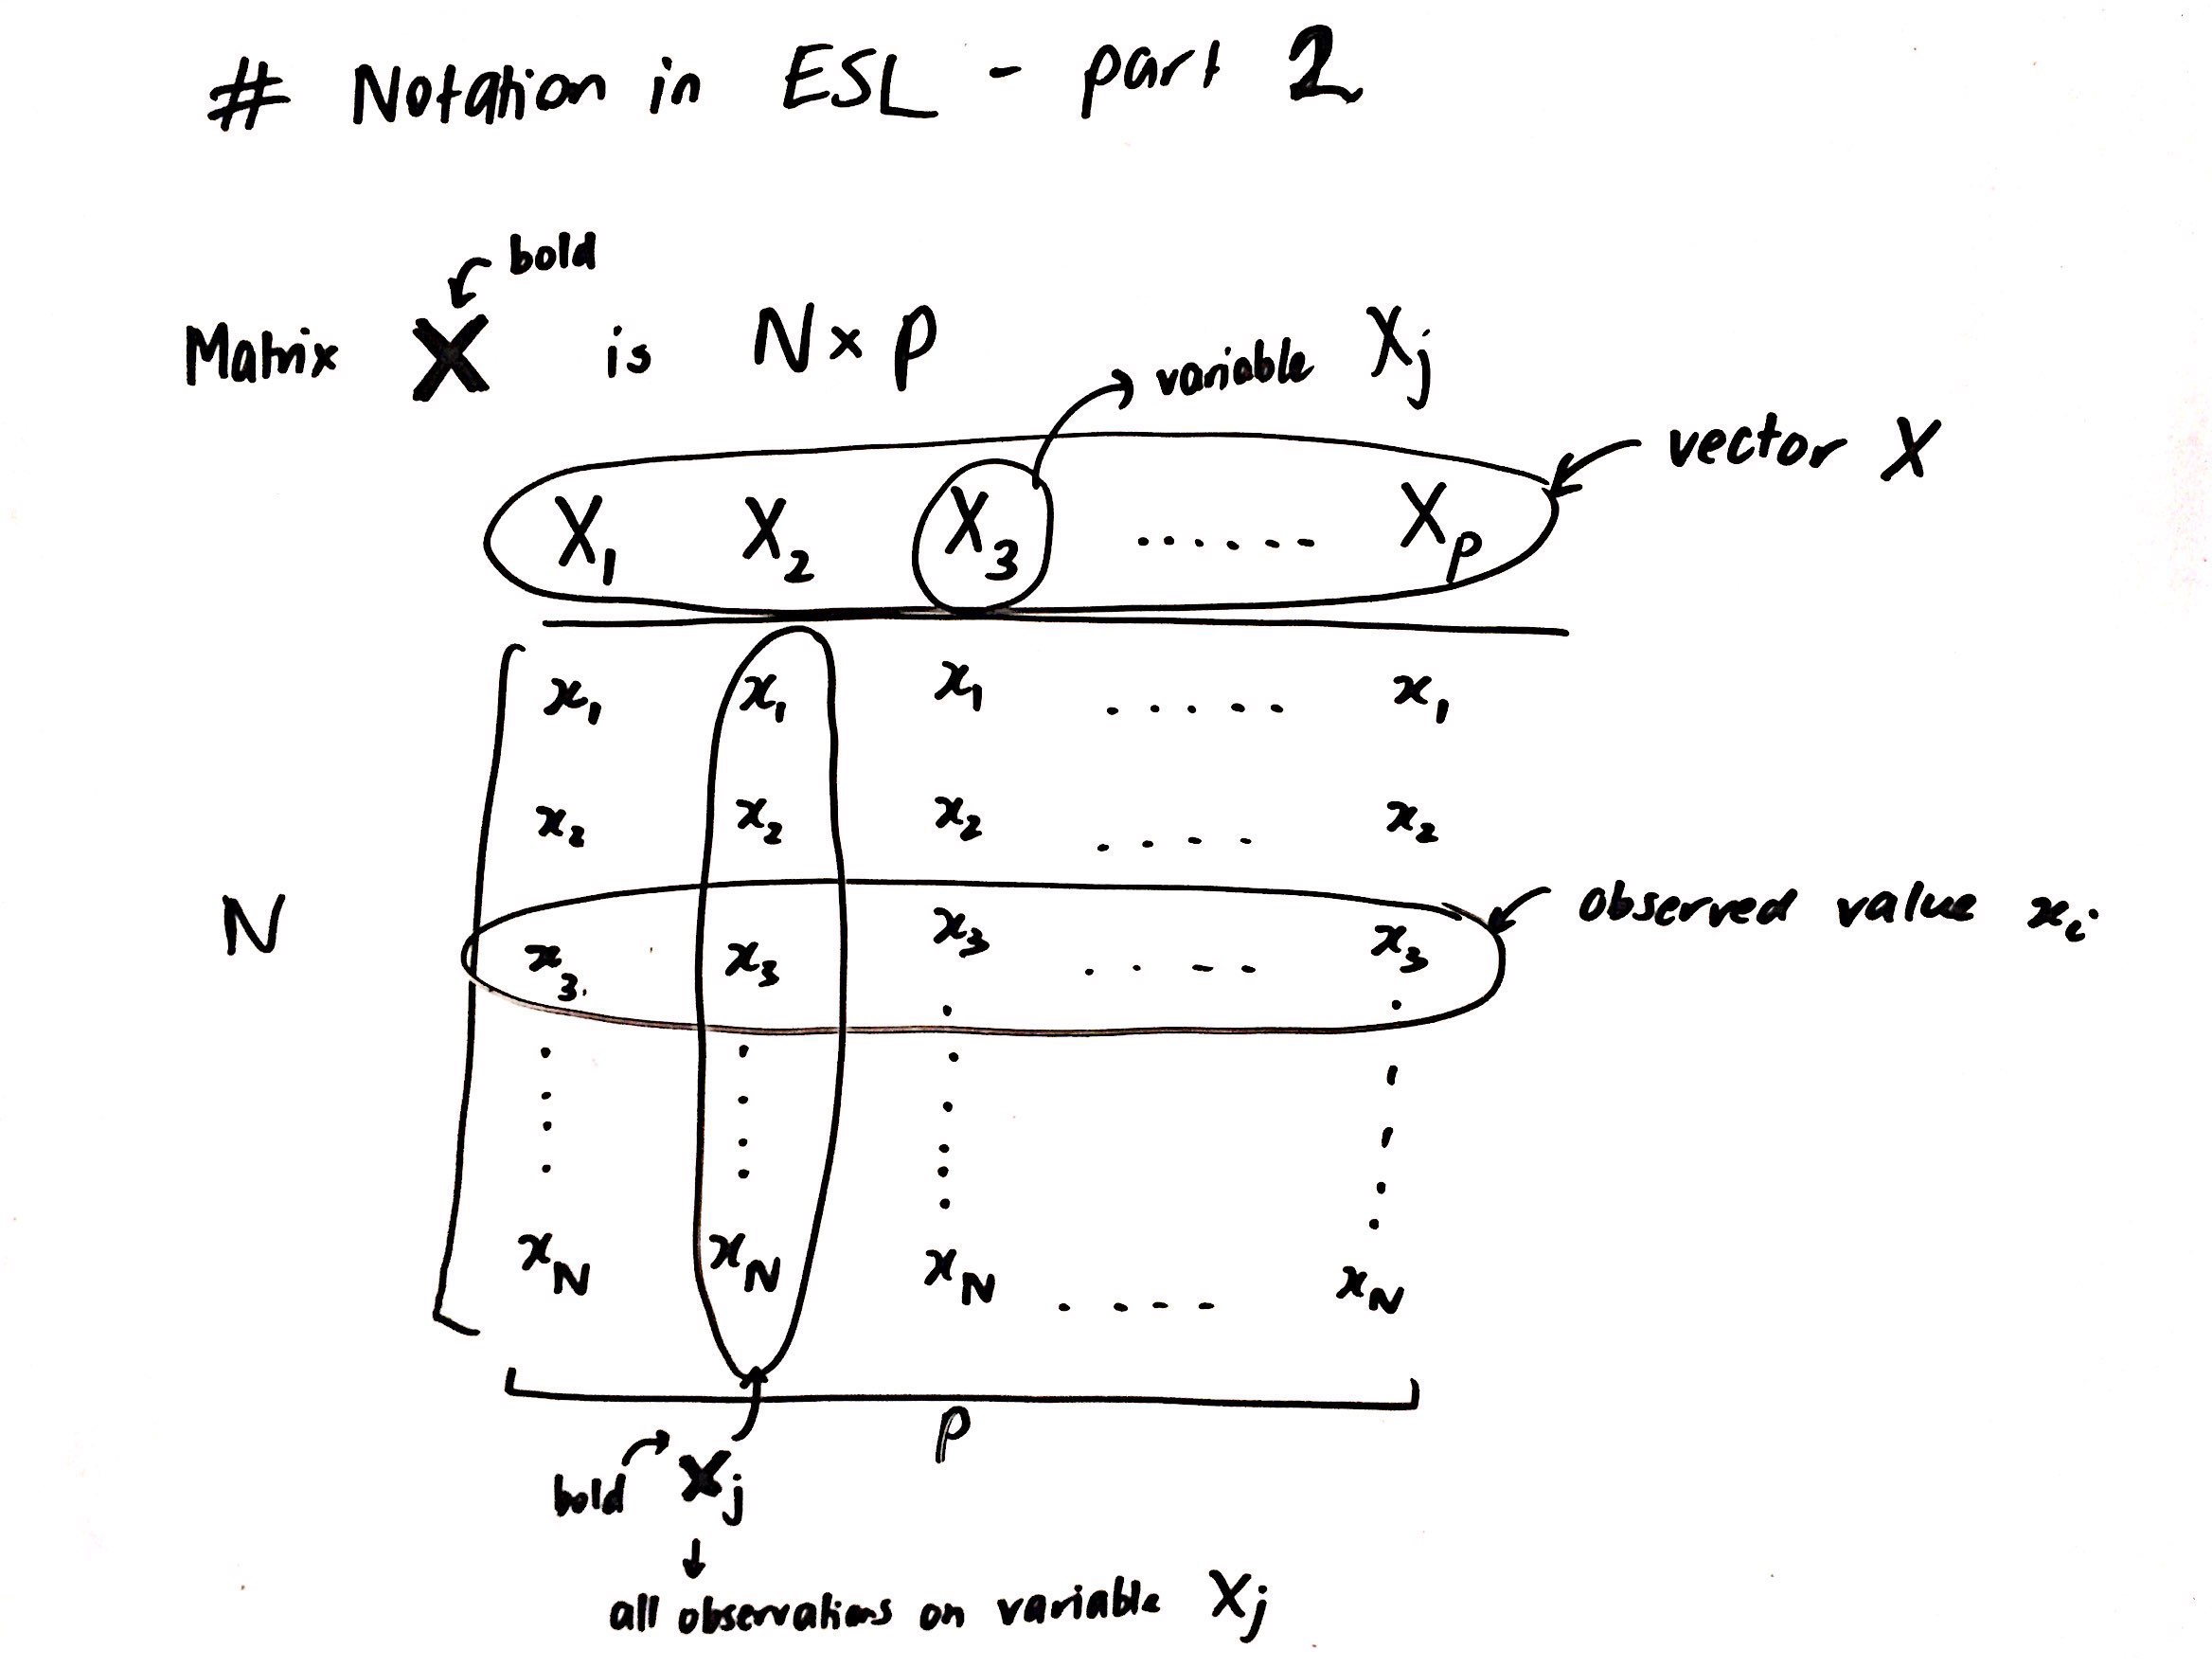 # Notation in ESL - part 2
bold
Matrix X is N x p
variable Xj
vector X
X1 X2 X3 ....... Xp
x1 x1 x1 ..... x1
x2 x2 x2 .... x2
N
x3 x3 x3 .... x3
observed value xi
xN xN xN .... xN
p
bold xj
all observations on variable Xj